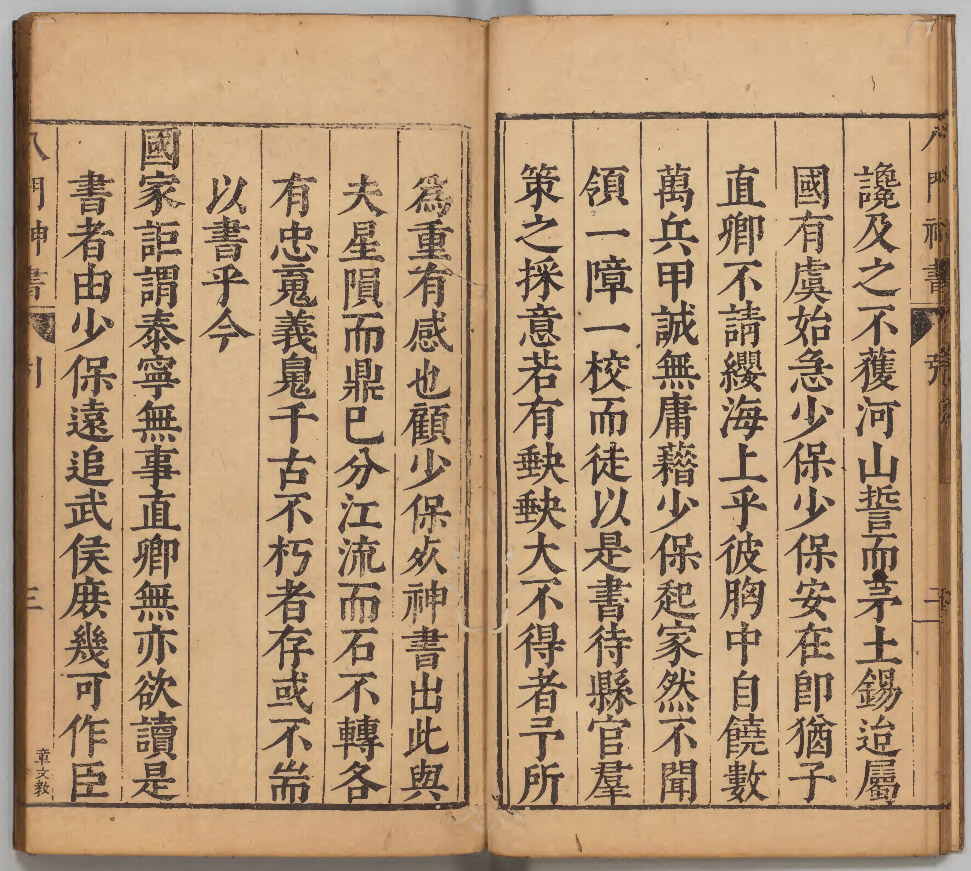 讒及之不獲河山誓而茅土錫迨屬
國有虞始急少保少保安在卽猶子
直卿不請纓海上乎彼胸中自饒數
萬兵甲誠無庸藉少保起家然不聞
領一障一校而徒以是書待縣官羣
策之採意若有鞅鞅大不得者予所
爲重有感也顧少保歿神書出此與
夫星隕而鼎已分江流而石不轉各
有忠䰟義鬼千古不朽者存或不耑
以書乎今
國家詎謂泰寧無事直卿無亦欲讀是
書者由少保遠追武侯庶幾可作臣
八門神書
三
章文敎